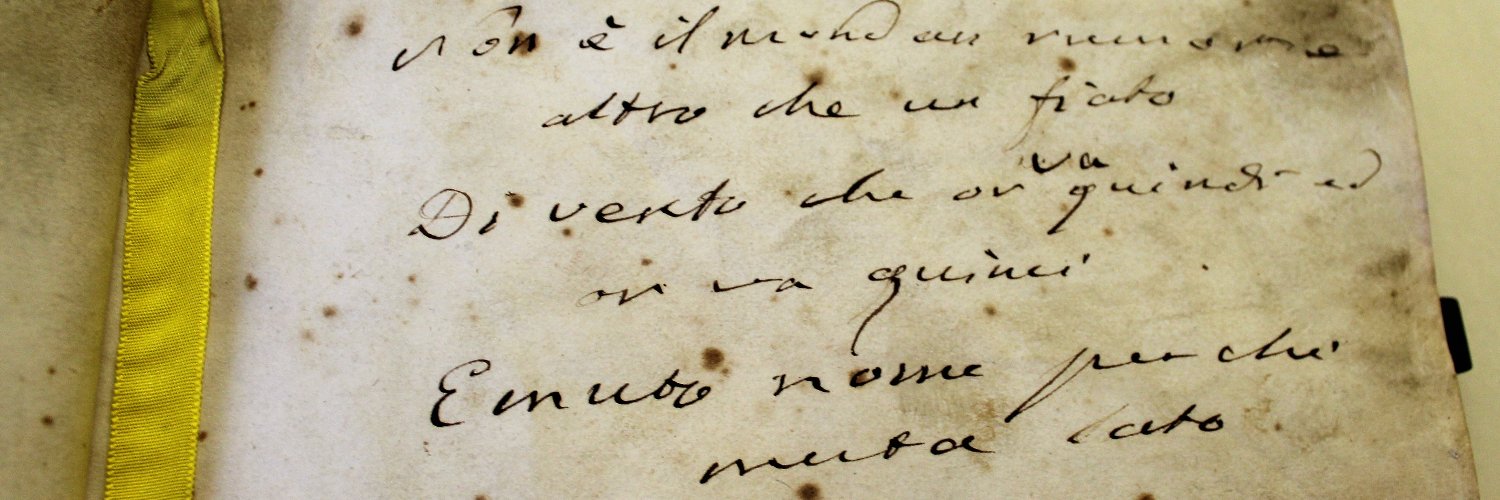 Non è il mondan rumore
altro che un fiato
Di vento che or va quindi ed
or va quinci
E muta nome perchè
muta lato